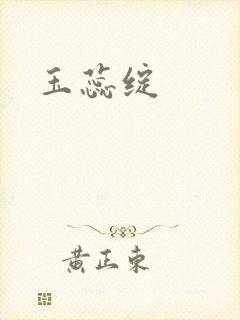 玉蕊绽
黄正东